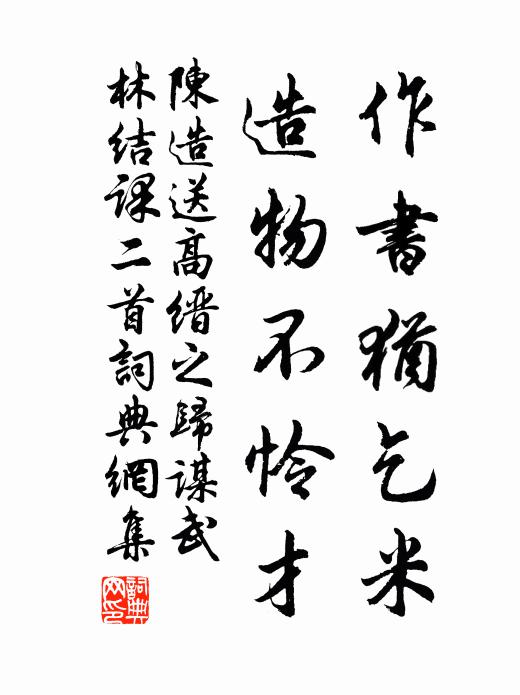 作書猶乞米
造物不怜才
陳造送高缙之歸謀武
林結課二首詞典網集
詞典網印